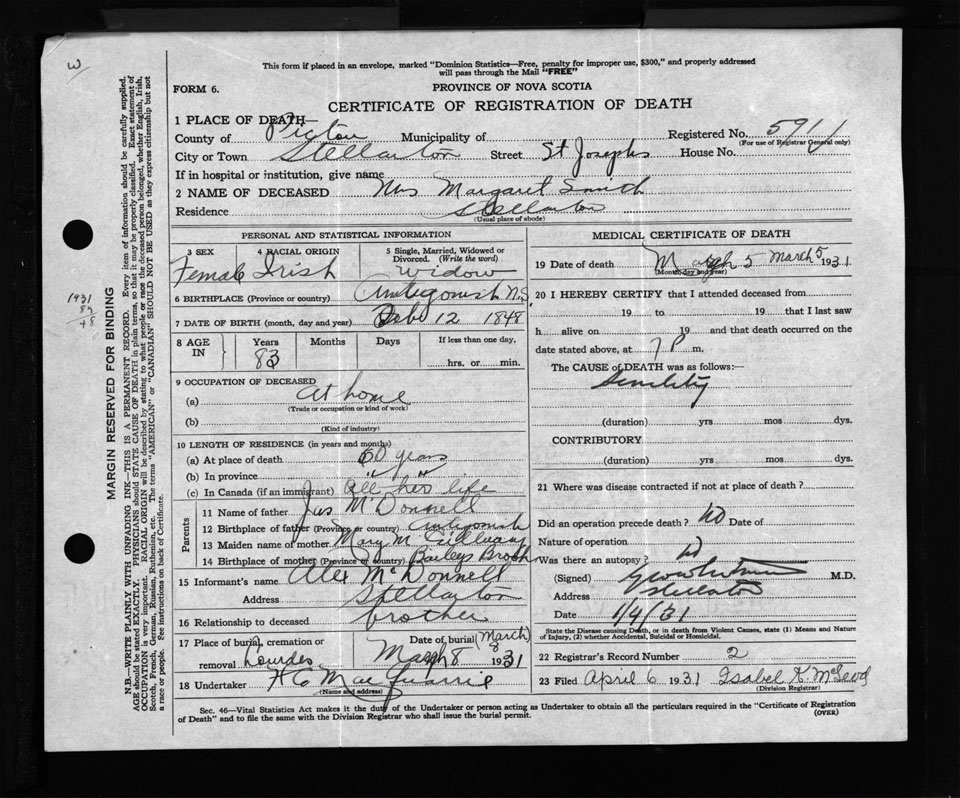 W
This form if placed in an envelope, marked "Dominion Statistics—Free, penalty for improper use, $300," and properly addressed
will pass through the Mail "FREE"
FORM 6.
PROVINCE OF NOVA SCOTIA
CERTIFICATE OF REGISTRATION OF DEATH
1 PLACE OF DEATH—
County of Pictou Municipality of Registered No. 5911
(For use of Registrar General only)
City or Town Stellarton Street St Josephs House No.
If in hospital or institution, give name
2 NAME OF DECEASED Mrs Margaret Smith
Residence Stellarton
(Usual place of abode)
PERSONAL AND STATISTICAL INFORMATION
3 SEX 4 RACIAL ORIGIN 5 Single, Married, Widowed or
Divorced. (Write the word)
Female Irish widow
6 BIRTHPLACE (Province or country) Antigonish N.S
7 DATE OF BIRTH (month, day and year) Feb 12 1848
8 AGE IN Years Months Days If less than one day,
83 hrs. or min.
9 OCCUPATION OF DECEASED
(a) At home
(Trade or occupation or kind of work)
(b)
(Kind of industry)
10 LENGTH OF RESIDENCE (in years and months)
(a) At place of death 60 years
(b) In province " "
(c) In Canada (if an immigrant) All her life
Parents
11 Name of father Jas McDonnell
12 Birthplace of father (Province or country) Antigonish
13 Maiden name of mother Mary M
14 Birthplace of mother (Province or country) Baileys Brook
15 Informant's name Alex McDonnell
Address Stellarton
16 Relationship to deceased brother
17 Place of burial, cremation or Date of burial (March 8
removal Lourdes March 8 1931
18 Undertaker H C MacQuarrie
(Name and address)
MEDICAL CERTIFICATE OF DEATH
19 Date of death March 5 March 5 1931
(Month day and year)
20 I HEREBY CERTIFY that I attended deceased from
19 to 19 that I last saw
h alive on 19 and that death occurred on the
date stated above, at 7 P m.
The CAUSE of DEATH was as follows:—
Senility
(duration) yrs mos dys.
CONTRIBUTORY
(duration) yrs mos dys.
21 Where was disease contracted if not at place of death?
Did an operation precede death? No Date of
Nature of operation
Was there an autopsy? No
(Signed) M.D.
Address Stellarton
Date 1/4/31
State the Disease causing Death, or in death from Violent Causes, state (1) Means and Nature
of Injury, (2) whether Accidental, Suicidal or Homicidal.
22 Registrar's Record Number 2
23 Filed April 6 1931 Isabel K. McLeod
(Division Registrar)
Sec. 46—Vital Statistics Act makes it the duty of the Undertaker or person acting as Undertaker to obtain all the particulars required in the "Certificate of Registration
of Death" and to file the same with the Division Registrar who shall issue the burial permit.
(OVER)
1931
83
48
MARGIN RESERVED FOR BINDING
N.B—WRITE PLAINLY WITH UNFADING INK—THIS IS A PERMANENT RECORD. Every item of information should be carefully supplied.
AGE should be stated EXACTLY. PHYSICIANS should STATE CAUSE OF DEATH in plain terms, so that it may be properly classified. Exact statement of
OCCUPATION is very important. RACIAL ORIGIN will be described by stating to what people or race the deceased person belonged, whether English, Irish,
Scotch, French, German, Russian, Ruthenian, etc. The terms "AMERICAN" or "CANADIAN" SHOULD NOT BE USED as they express citizenship but not
a race or people. See instructions on back of Certificate.